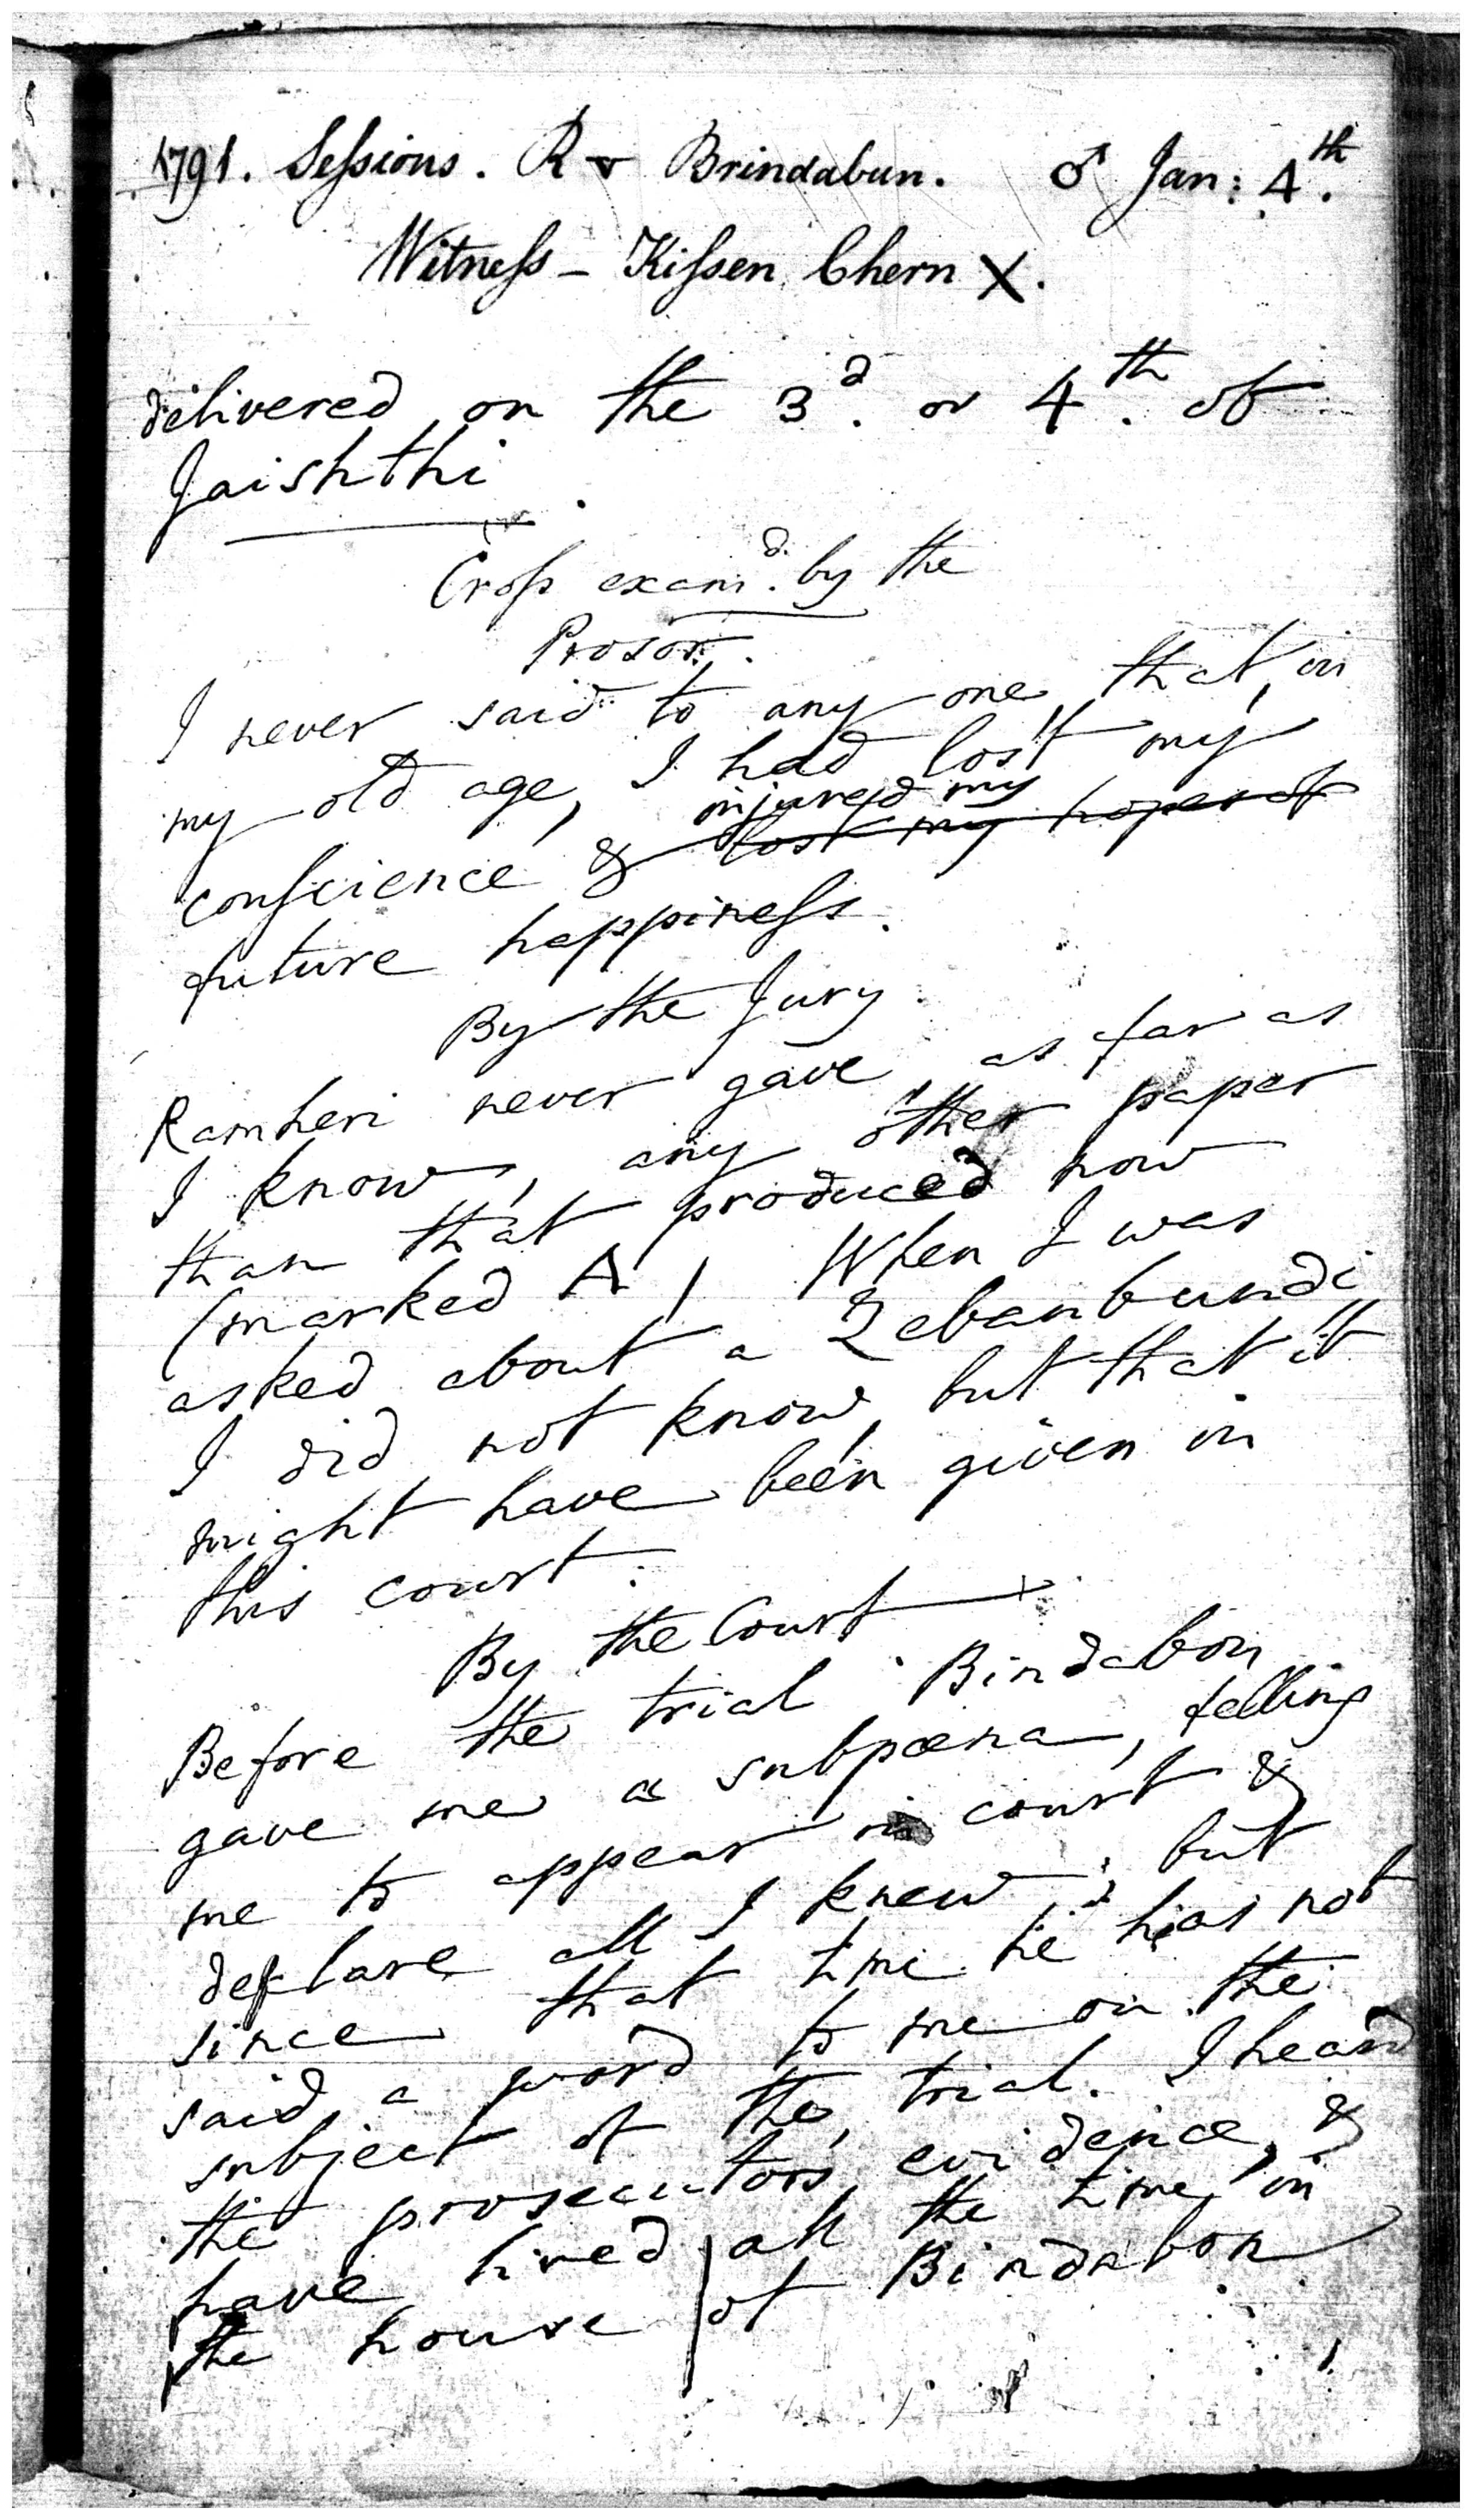 1791. Sessions. R v Brindabun. ♂ Jan: 4th.
Witness - Kissen Chern X.
delivered on the 3d. or 4th. of
Jaishthi.
Cross examd. by the
Prosor.
I never said to any one that, in
my old age, I had lost my
injured my
conscience & lost my hopes of
future happiness.
By the Jury.
Ramheri never gave, as far as
I know, any other paper
than that produced now
(marked A) When I was
asked about a Zebanbundi,
I did not know, but that it
might have been given in
this court.
By the Court
Before the trial Bindabon
gave me a subpœna, telling
me to appear in court &
declare all I knew; but
since that time he has not
said a word to me on the
subject of the trial. I heard
the prosecutors evidence, &
have lived all the time in
the house of Bindabon